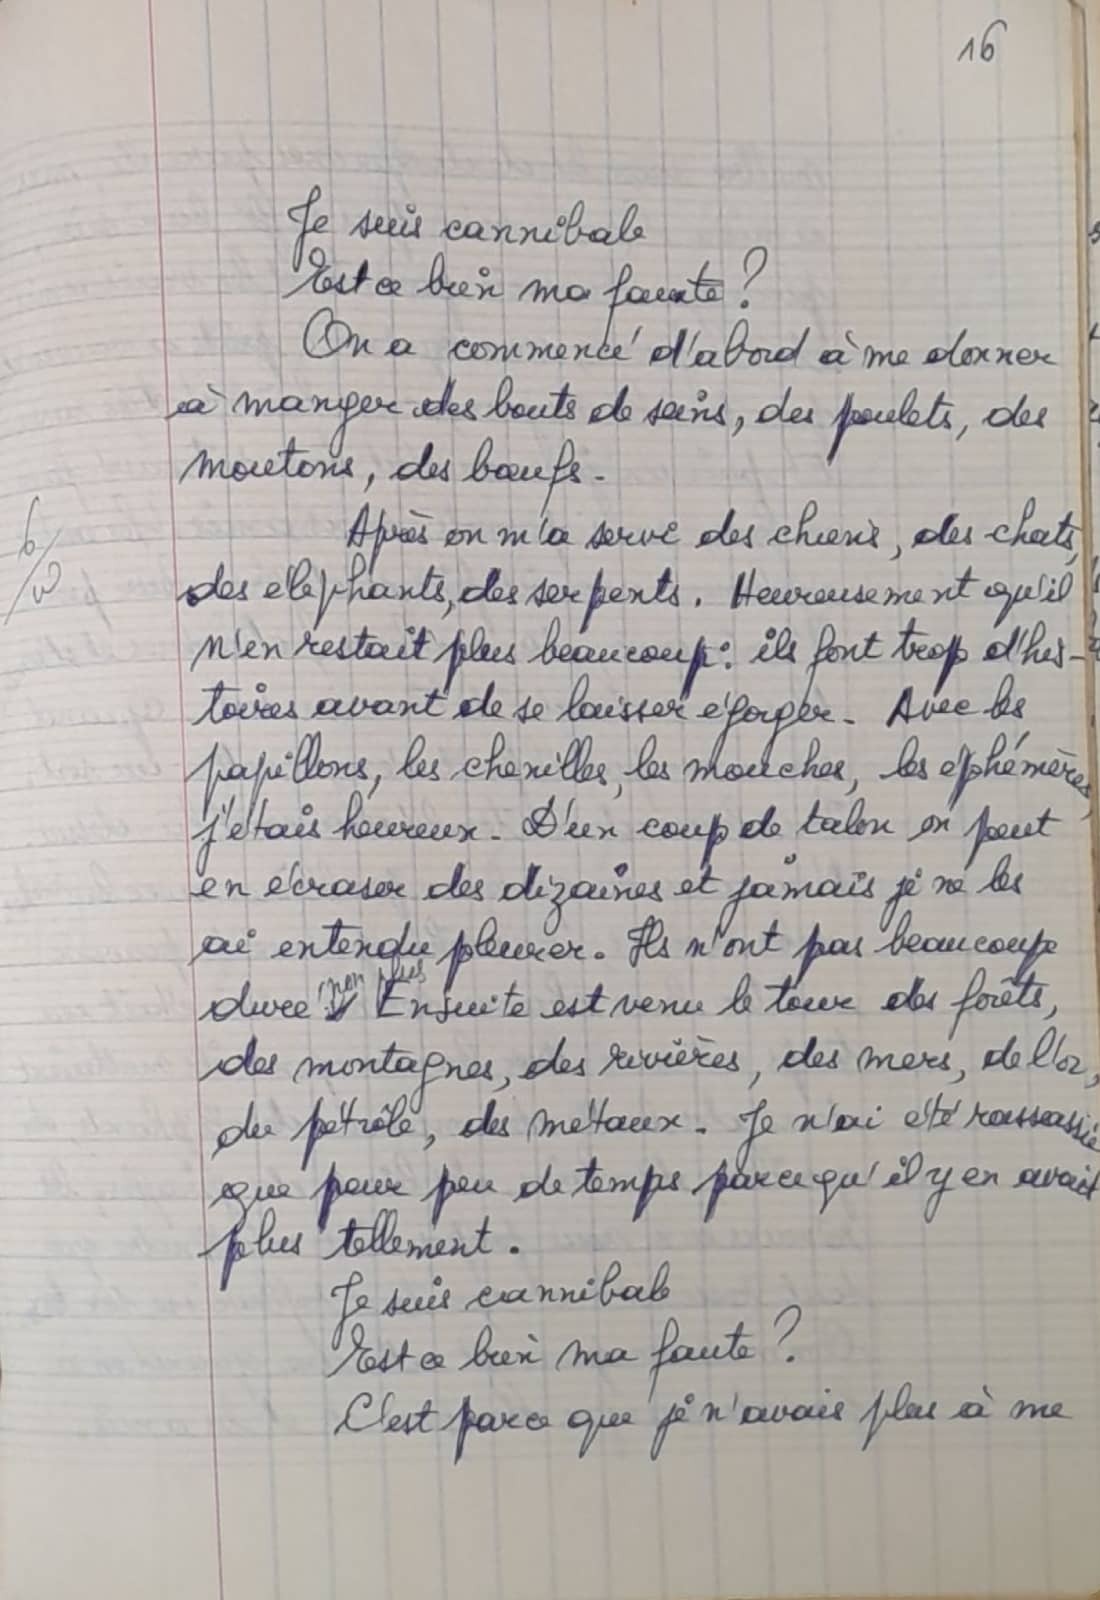 16
Je suis cannibale
Est ce bien ma faute ?
On a commencé d'abord à me donner
à manger des bouts de seins, des poulets, des
moutons, des bœufs.
Après on m'a servi des chiens, des chats,
des éléphants, des serpents. Heureusement qu'il
n'en restait plus beaucoup : ils font trop d'his-
toires avant de se laisser égorger. Avec les
papillons, les chenilles, les mouches, les éphémères,
j'étais heureux. D'un coup de talon on peut
en écraser des dizaines et jamais je ne les
ai entendu pleurer. Ils n'ont pas beaucoup
duré non plus Ensuite est venu le tour des forêts,
des montagnes, des rivières, des mers, de l'or,
du pétrôle, des métaux. Je n'ai été rassasié
que pour peu de temps parce qu'il y en avait
plus tellement.
Je suis cannibale
Est ce bien ma faute ?
C'est parce que je n'avais plus à me